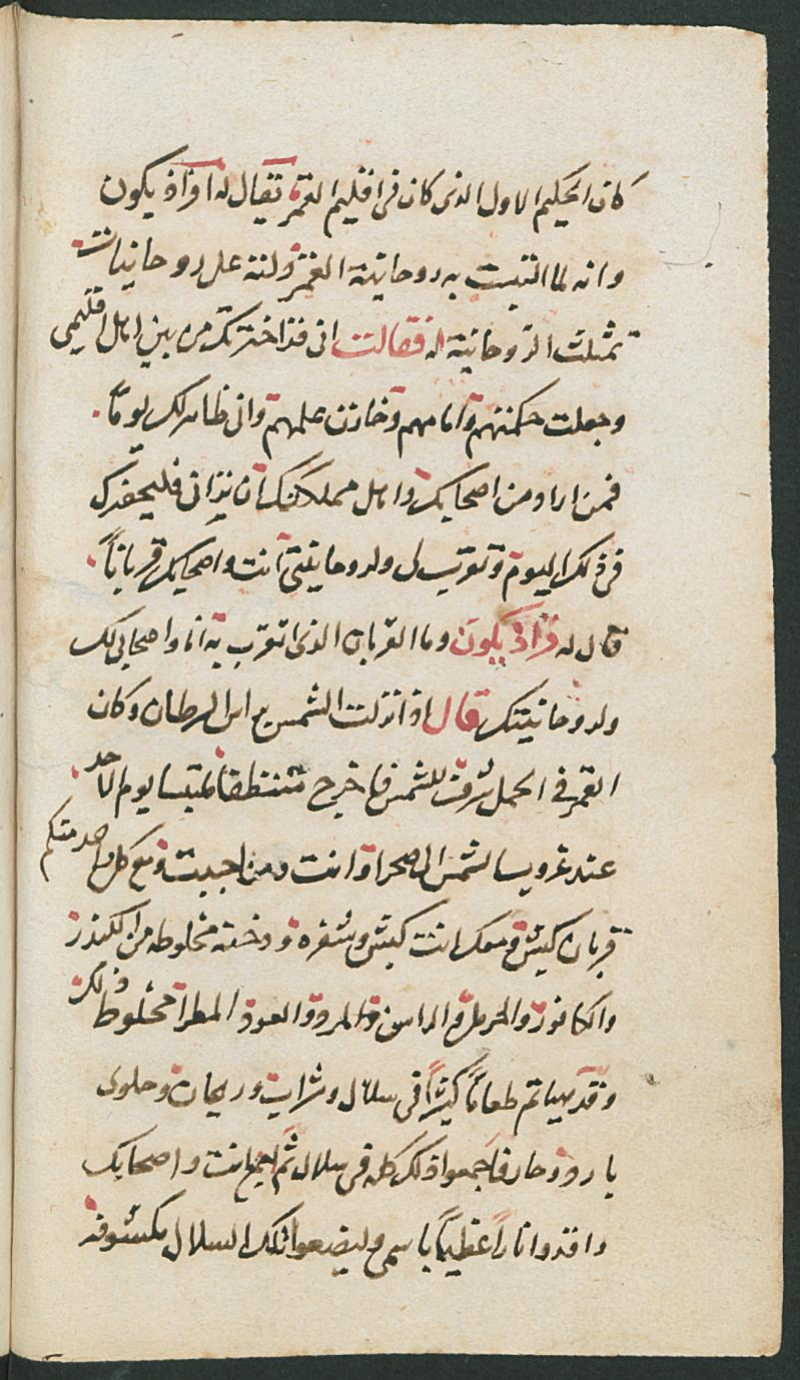 كان الحكيم الاول الذى كان فى اقليم القمر يقال له افراذيكون
وانه لما التبست به روحانية القمر ولته على روحانيات
تمثلت الروحانية له فقالت انى قد اخترتك من بين اهل اقليمى
وجعلت حكمتهم وامامهم وخازن علمهم وانى ظاهر لك يوما
فمن اراد من اصحابك واهل مملكتك ان يرانى فليحضرك
فى ذلك اليوم وتقرب لى ولروحانيتى انت واصحابك قربانا
قال له فراذيكون وما القربان الذى اتقرب به انا واصحابى لك
ولروحانيتك قال اذا نزلت الشمس براس السرطان وكان
القمر فى الحمل شرف للشمس فاخرج متنطقا يوم الاحد
عند غروب الشمس الى الصحراء وانت ومن احببت ومع كل واحد منكم
قربان كبش ومعك انت كبش وشفره ودخنه مخلوطه من الكندر
والكافور والحرمل والراسن والمر والعود المطرا مخلوط ذلك
وقد هياتم طعاما كثيرا فى سلال وشراب وريحان وحلوى
بارد وحار فاجمعوا ذلك كله فى سلال ثم انت واصحابك
واقدوا نارا عظيما باسمى وليضعوا تلك السلال مكشوفه